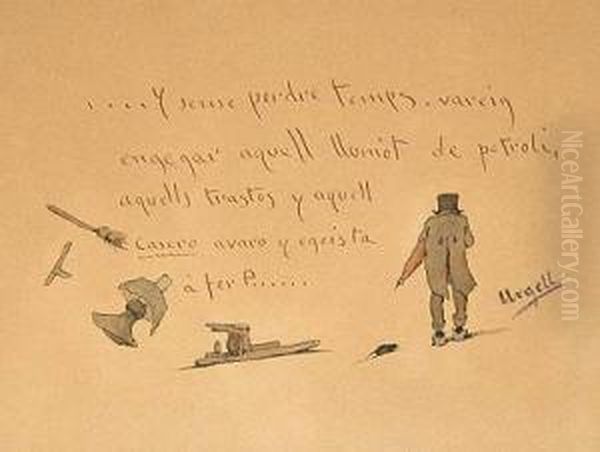 ....Y sense perdre temps, vareig
engegar aquell llumot de petroli,
aquells trastos y aquell
casero avaro y egoista
á fer P......
Urgell
NiceArtGallery.com